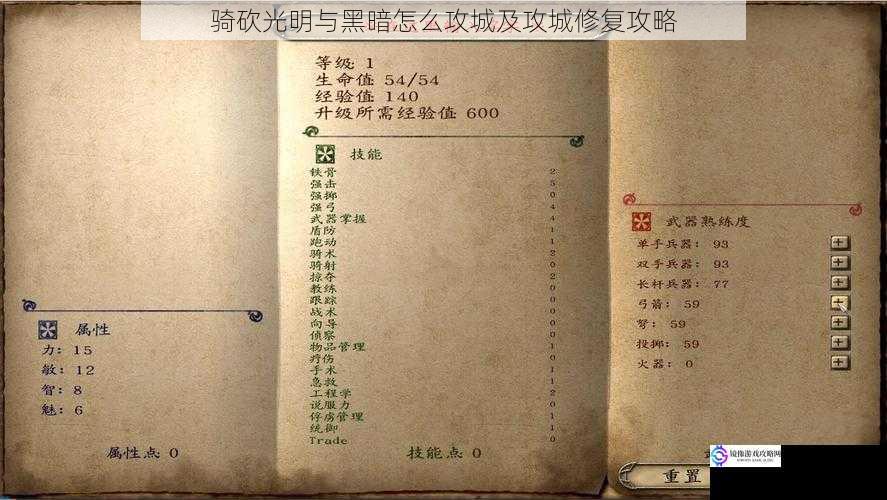 骑砍光明与黑暗怎么攻城及攻城修复攻略
等级: 1
生命值: 54/54
经验值: 140
升级所需经验值: 600
技能
铁骨 2
强击 5
强掷 0
强弓 4
武器掌握 4
盾防 1
跑动 1
骑术 2
骑射 0
掠夺 2
教练 0
跟踪 0
战术 0
向导 0
侦察 0
物品管理 1
疗伤 0
手术 1
急救 1
工程学 2
说服力 0
俘虏管理 1
统御 1
Trade 0
技能点: 0
属性
力: 15
敏: 12
智: 8
魅: 6
属性点: 0
武器熟练度
单手兵器: 93
双手兵器: 93
长杆兵器: 77
弓箭: 59
弩: 59
投掷: 59
火器: 0
重置
镜像游戏攻略网